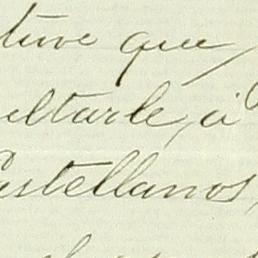 tuve que
ultarle, á
Castellanos,